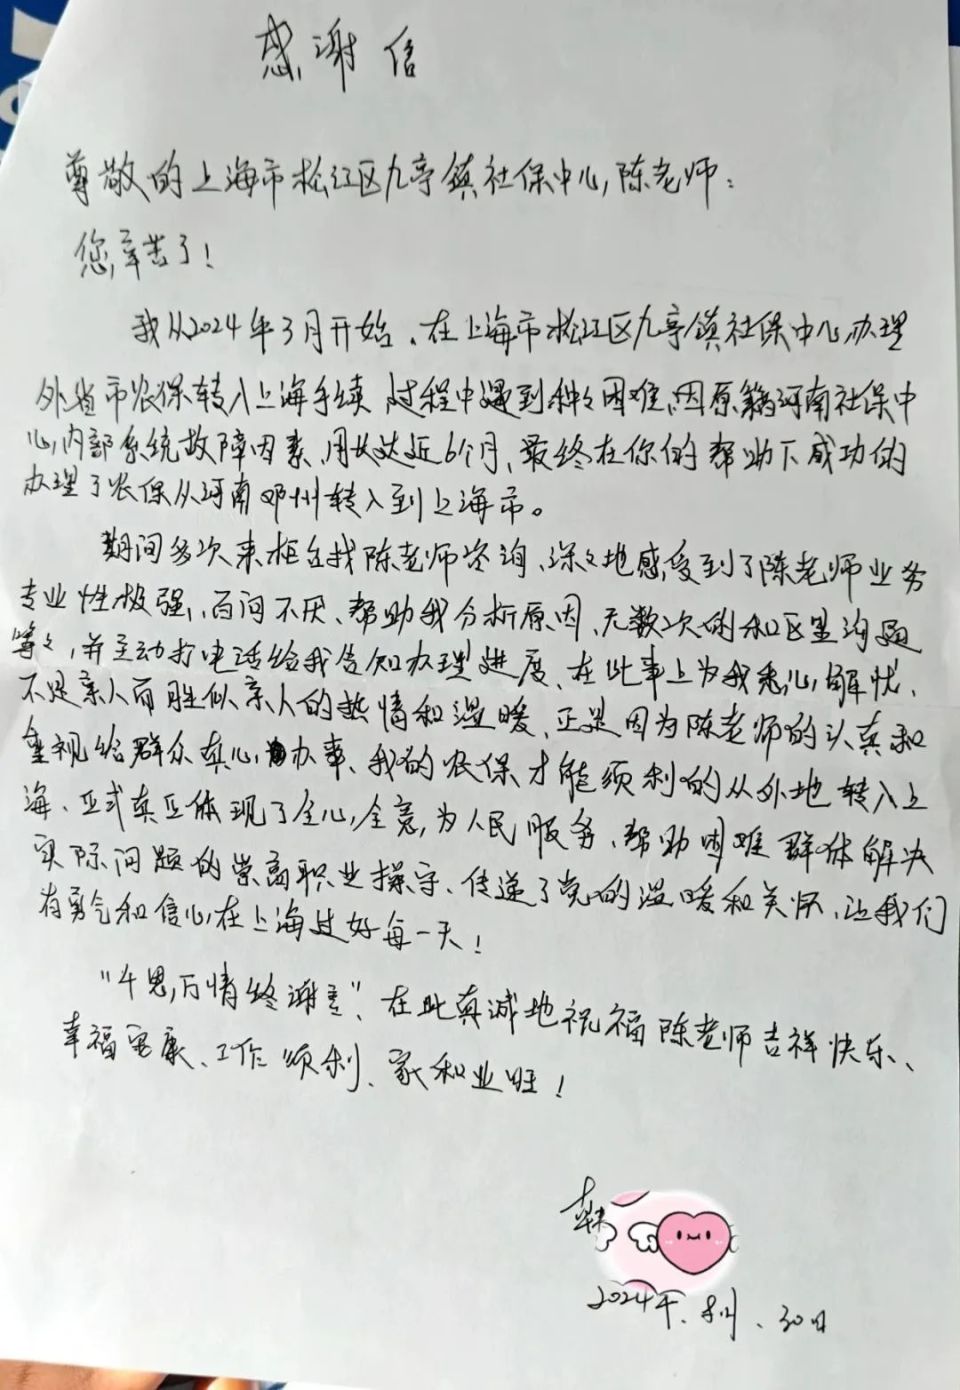 感谢信
尊敬的上海市松江区九亭镇社保中心,陈老师:
您辛苦了!
我从2024年3月开始、在上海市松江区九亭镇社保中心办理
外省市农保转入上海手续 过程中遇到种々困难、因原籍河南社保中
心内部系统故障因素、用长达近6个月、最终在你的帮助下成功的
办理了农保从河南邓州转入到上海市。
期间多次来柜台找陈老师咨询、深々地感受到了陈老师业务
专业性极强、百问不厌、帮助我分析原因、无数次的和区里沟通
等々,并主动打电话给我告知办理进度、在此事上为我悉心解忧、
不是亲人而胜似亲人的热情和温暖、正是因为陈老师的认真和
重视给群众真心办事、我的农保才能顺利的从外地转入上
海、正式真正体现了全心全意为人民服务、帮助困难群体解决
实际问题的崇高职业操守、传递了党的温暖和关怀、让我们
有勇气和信心在上海过好每一天!
"千恩万情终谢意"、在此真诚地祝福陈老师吉祥快乐、
幸福安康、工作顺利、家和业旺!
韩
2024年、8月、30日